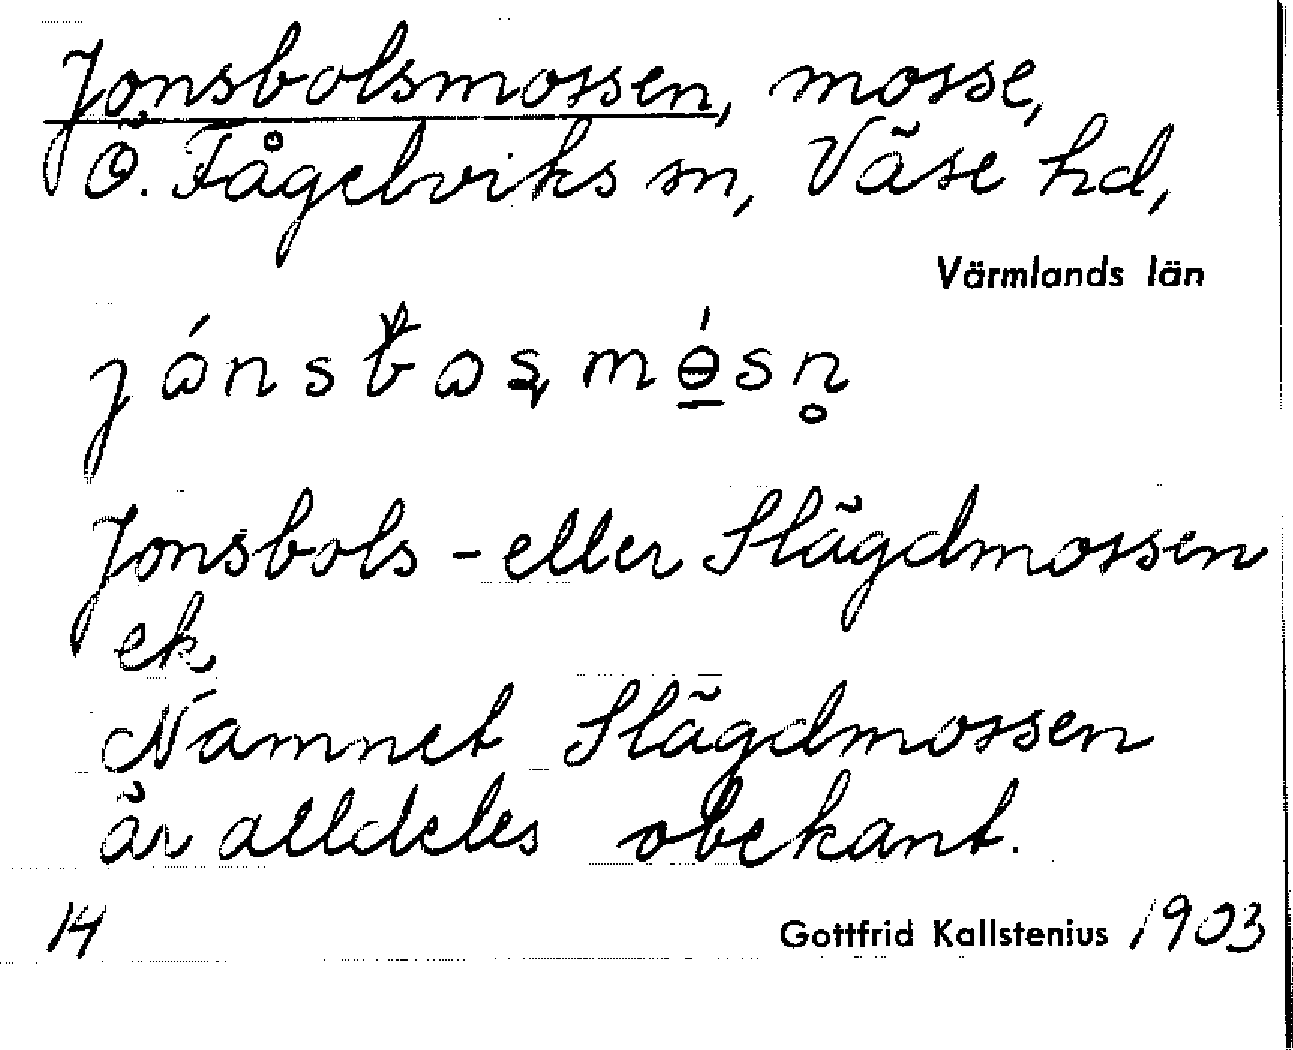 Jonsbolsmossen, mosse,
Ö. Fågelviks sn, Väse hd,
Värmlands län
Jonsbols - eller Slägdmossen
ek
Namnet Slägdmossen
är alldeles obekant.
14 Gottfrid Kallstenius 1903